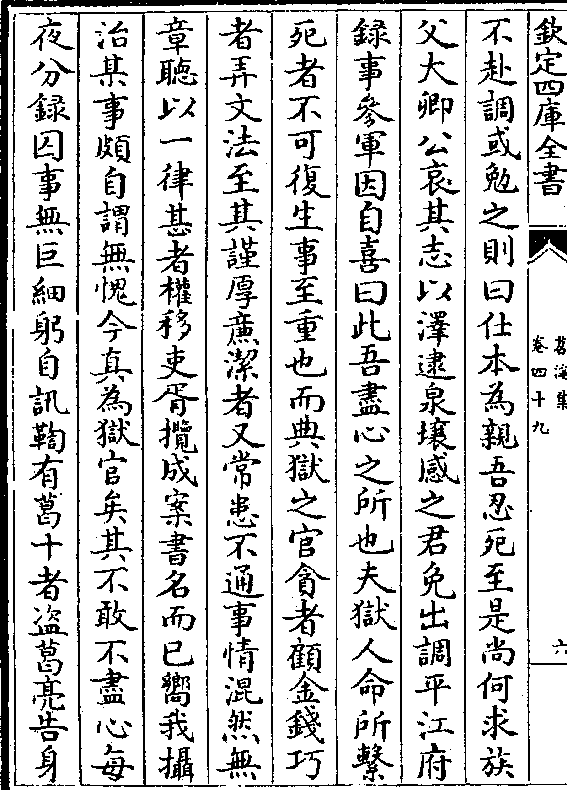 欽定四庫全書
苕溪集
卷四十九
六
不赴調或勉之則曰仕本為親吾忍死至是尚何求族
父大卿公哀其志以澤逮泉壤感之君免出調平江府
録事參軍因自喜曰此吾盡心之所也夫獄人命所繫
死者不可復生事至重也而典獄之官貪者顧金錢巧
者弄文法至其謹厚亷潔者又常患不通事情混然無
章聽以一律甚者權移吏胥攬成案書名而已嚮我攝
治某事頗自謂無愧今真為獄官矣其不敢不盡心每
夜分録囚事無巨細躬自訊鞫有葛十者盗葛亮告身